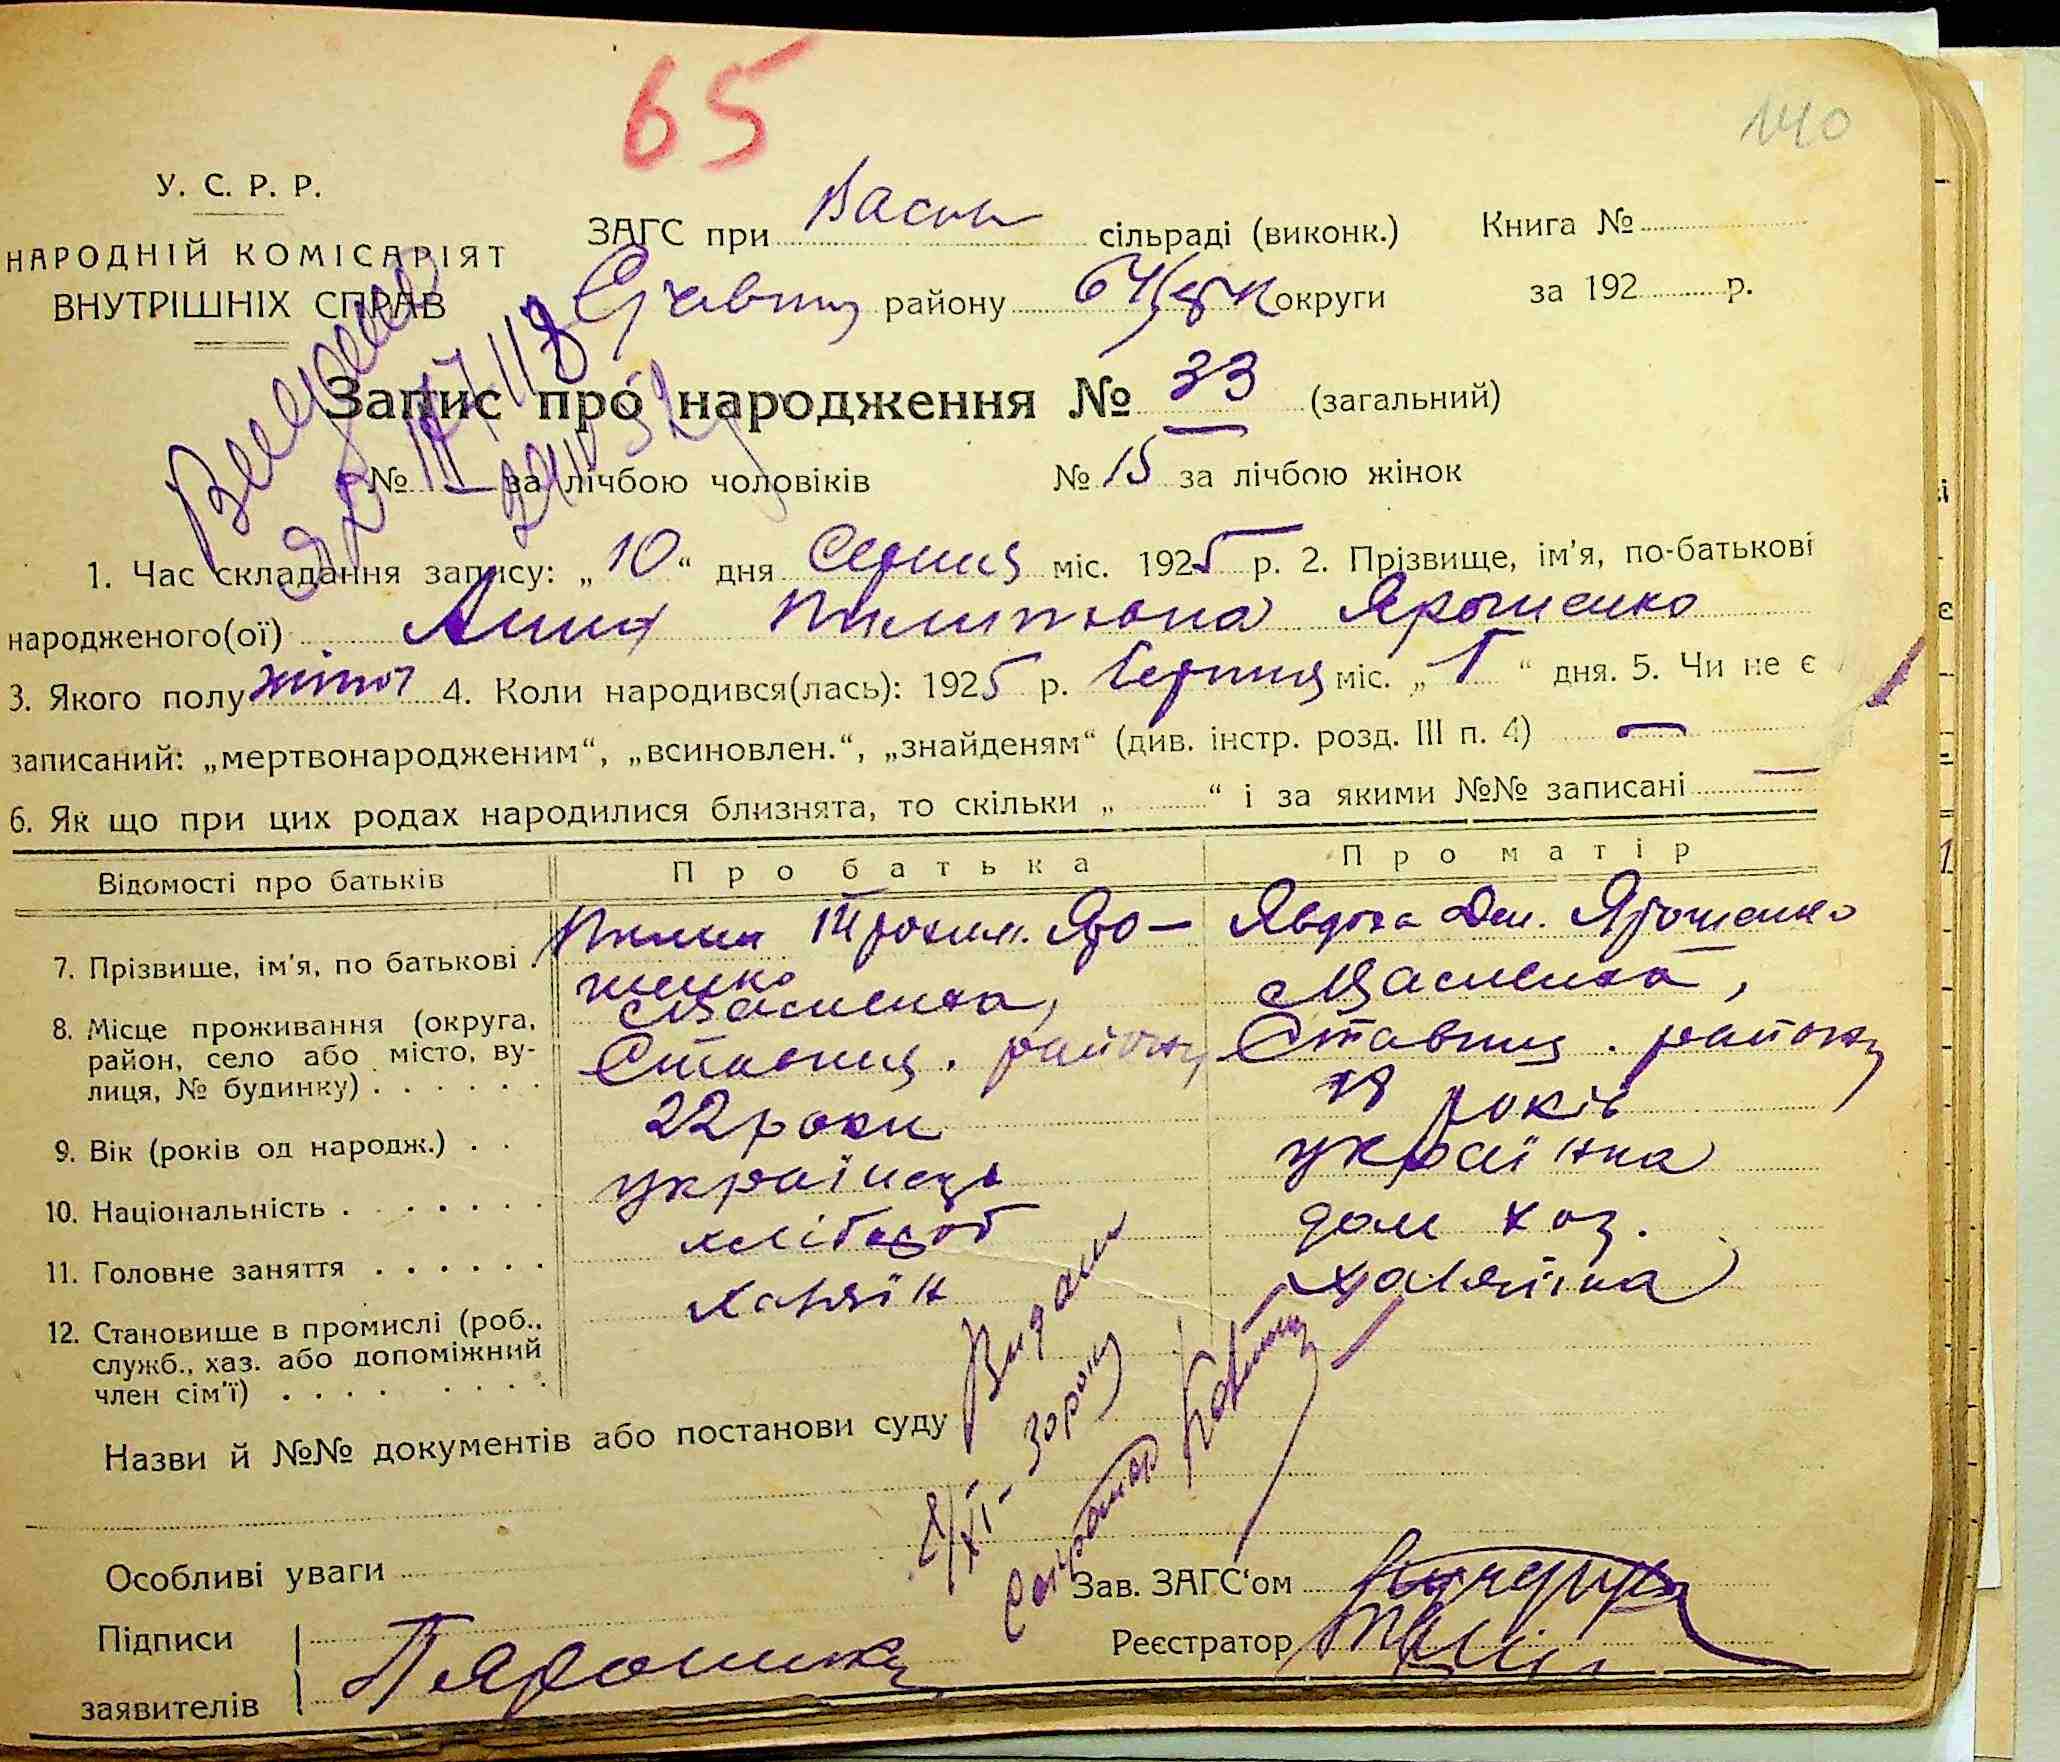 65
140
У. С. Р. Р.
НАРОДНІЙ КОМІСАРІЯТ
ВНУТРІШНІХ СПРАВ
ЗАГС при Васил сільраді (виконк.) Книга №
району округи за 192 р.
Запис про народження № 33 (загальний)
№ — за лічбою чоловіків № 15 за лічбою жінок
1. Час складання запису: „ 10 “ дня Серпня міс. 1925 р. 2. Прізвище, ім'я, по-батькові
народженого(ої) Анна Пилипівна Ярошенко
3. Якого полу жіноч 4. Коли народився(лась): 1925 р. Серпня міс. „ “ дня. 5. Чи не є
записаний: „мертвонародженим“, „всиновлен.“, „знайденям“ (див. інстр. розд. III п. 4) —
6. Як що при цих родах народилися близнята, то скільки „ “ і за якими №№ записані —
Відомості про батьків Про батька Про матір
7. Прізвище, ім'я, по батькові . Пилип Трохим. Яро- Явдоха Дем. Ярошенко
шенко
8. Місце проживання (округа, район, село або місто, вулиця, № будинку) . . . . . . Василиха, Ставищ. району Василиха, Ставищ. району
9. Вік (років од народж.) . . 22 роки років
10. Національність . . . . . . . українець українка
11. Головне заняття . . . . . . хлібороб дом хоз.
12. Становище в промислі (роб., служб., хаз. або допоміжний член сім'ї) . . . . . . . . хазяїн хазяїка
Назви й №№ документів або постанови суду
Видана
Особливі уваги
Зав. ЗАГС'ом
Підписи
Реєстратор
заявителів П Ярошенко